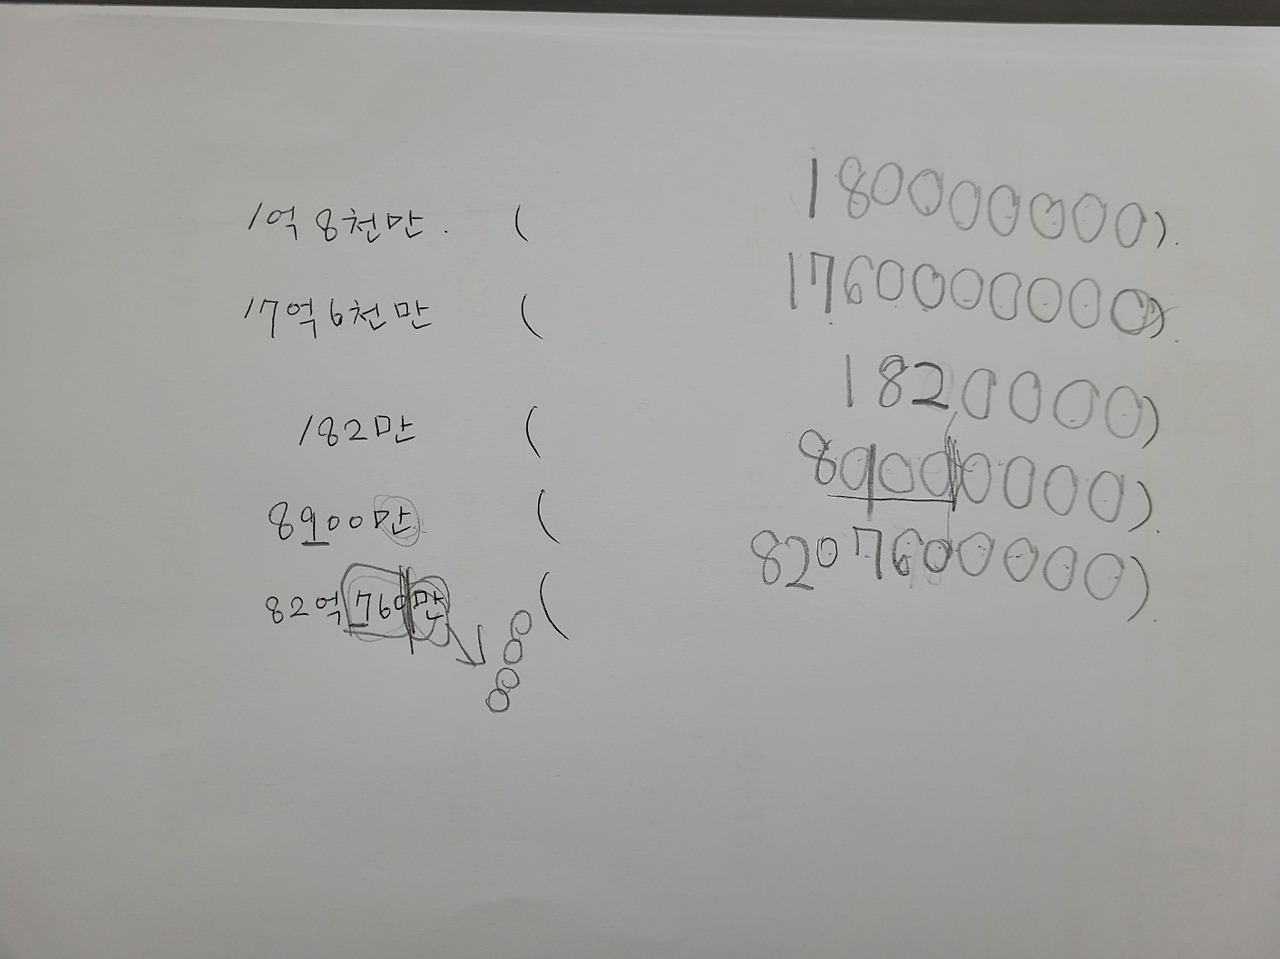 1억 8천만. ( 180000000).
17억 6천만 ( 1760000000).
182만 ( 1820000)
8900만 ( 80000000).
82억 760만 ( 8207600000).
0
0
0
0